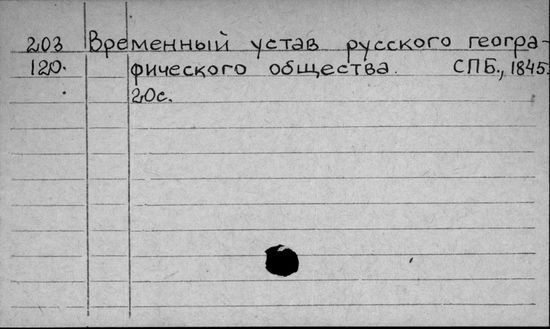 203 Временный устав русского геогра-
120. фического общества. СПБ., 1845.
20с.